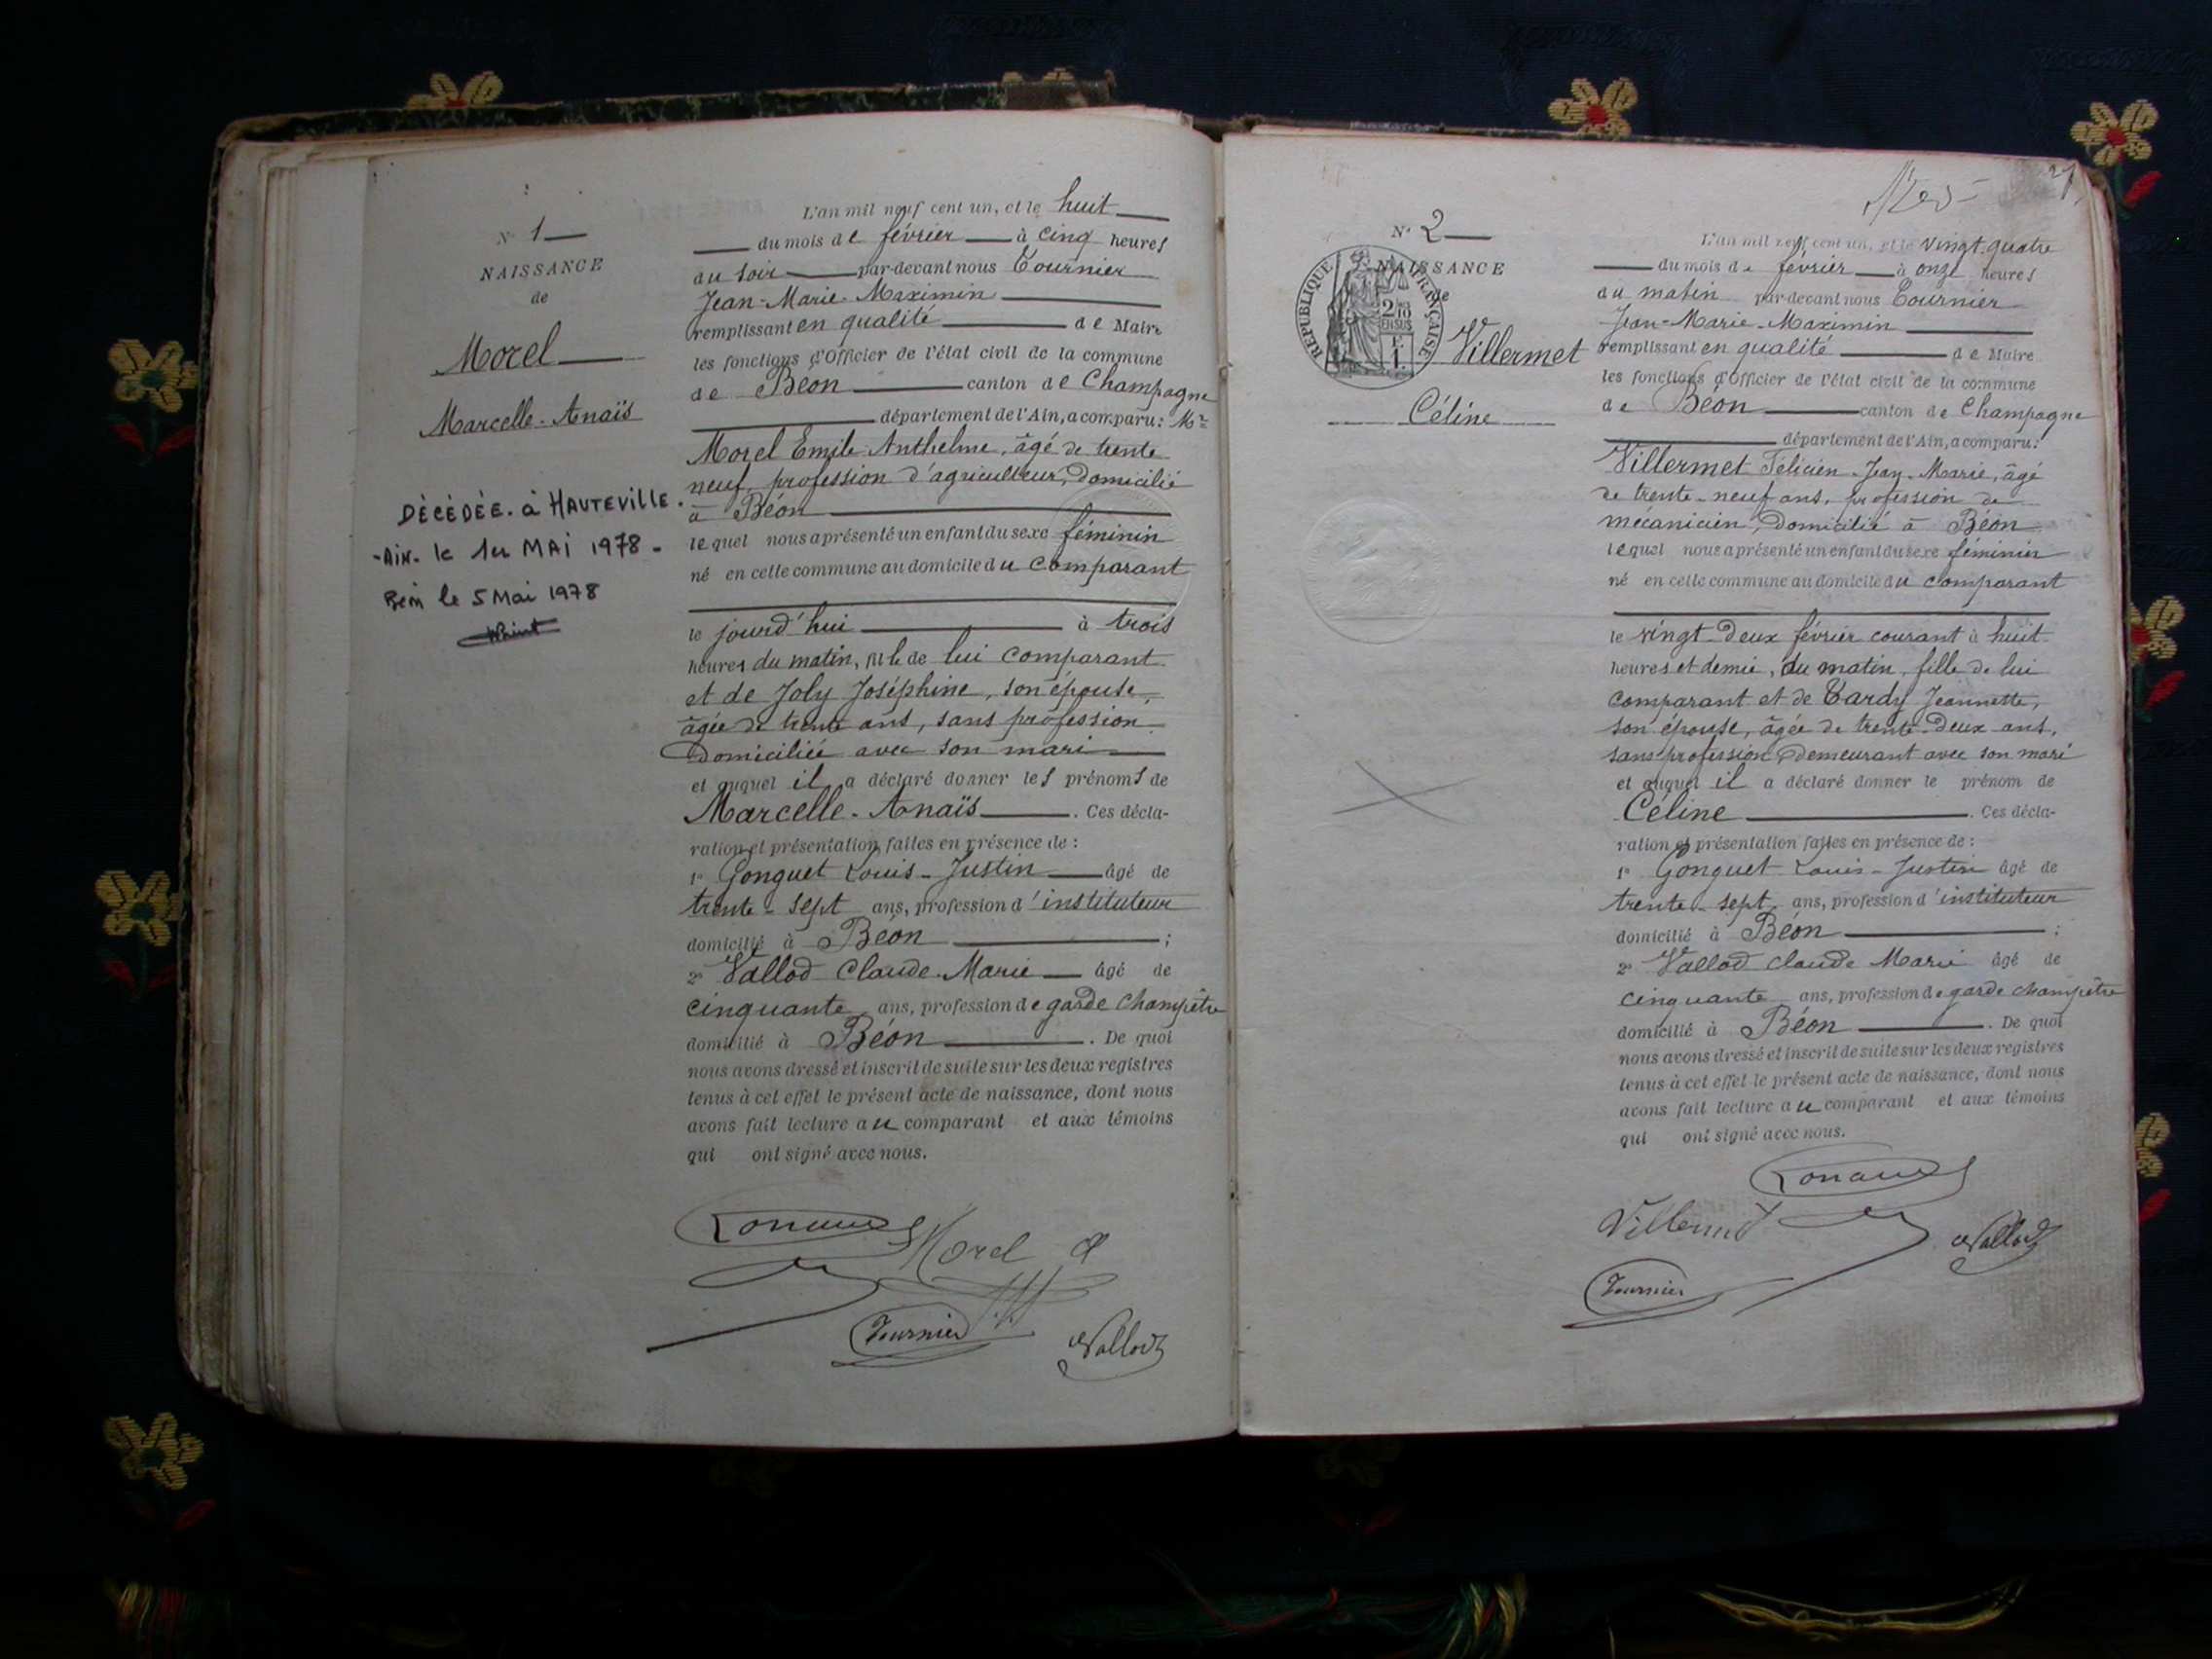 N° 1
NAISSANCE
de
Morel
Marcelle-Anaïs
DÉCÉDÉE. à HAUTEVILLE.
-AIN- le 1er MAI 1978 -
le 5 Mai 1978
L'an mil neuf cent un, et le huit
du mois de février à cinq heures
du soir par-devant nous Tournier
Jean-Marie-Maximin
remplissant en qualité de Maire
les fonctions d'Officier de l'état civil de la commune
de Béon canton de Champagne
département de l'Ain, a comparu: Mr
Morel Emile Anthelme, âgé de trente
neuf, profession d'agriculteur, domicilié
à Béon
lequel nous a présenté un enfant du sexe féminin
né en cette commune au domicile du comparant
le jourd'hui à trois
heures du matin, fille de lui comparant
et de Joly Joséphine, son épouse,
âgée de trente ans, sans profession
domiciliée avec son mari
et auquel il a déclaré donner les prénoms de
Marcelle-Anaïs. Ces décla-
ration et présentation faites en présence de :
1° Gonguet Louis-Justin âgé de
trente-sept ans, profession d'instituteur
domicilié à Béon ;
2° Vallod Claude-Marie âgé de
cinquante ans, profession de garde champêtre
domicilié à Béon. De quoi
nous avons dressé et inscrit de suite sur les deux registres
tenus à cet effet le présent acte de naissance, dont nous
avons fait lecture au comparant et aux témoins
qui ont signé avec nous.
Morel
Tournier
Vallod
N° 2
NAISSANCE
de
RÉPUBLIQUE FRANÇAISE
2/10 EN SUS
F. 1.
Villermet
Céline
L'an mil neuf cent un, et le vingt-quatre
du mois de février à onze heures
du matin par-devant nous Tournier
Jean-Marie-Maximin
remplissant en qualité de Maire
les fonctions d'Officier de l'état civil de la commune
de Béon canton de Champagne
département de l'Ain, a comparu:
Villermet Félicien-Jean-Marie, âgé
de trente-neuf ans, profession de
mécanicien, domicilié à Béon
lequel nous a présenté un enfant du sexe féminin
né en cette commune au domicile du comparant
le vingt-deux février courant à huit
heures et demie, du matin, fille de lui
comparant et de Tardy Jeannette,
son épouse, âgée de trente-deux ans,
sans profession, demeurant avec son mari
et auquel il a déclaré donner le prénom de
Céline. Ces décla-
ration et présentation faites en présence de :
1° Gonguet Louis-Justin âgé de
trente-sept ans, profession d'instituteur
domicilié à Béon ;
2° Vallod Claude Marie âgé de
cinquante ans, profession de garde champêtre
domicilié à Béon. De quoi
nous avons dressé et inscrit de suite sur les deux registres
tenus à cet effet le présent acte de naissance, dont nous
avons fait lecture au comparant et aux témoins
qui ont signé avec nous.
Villermet
Vallod
Tournier